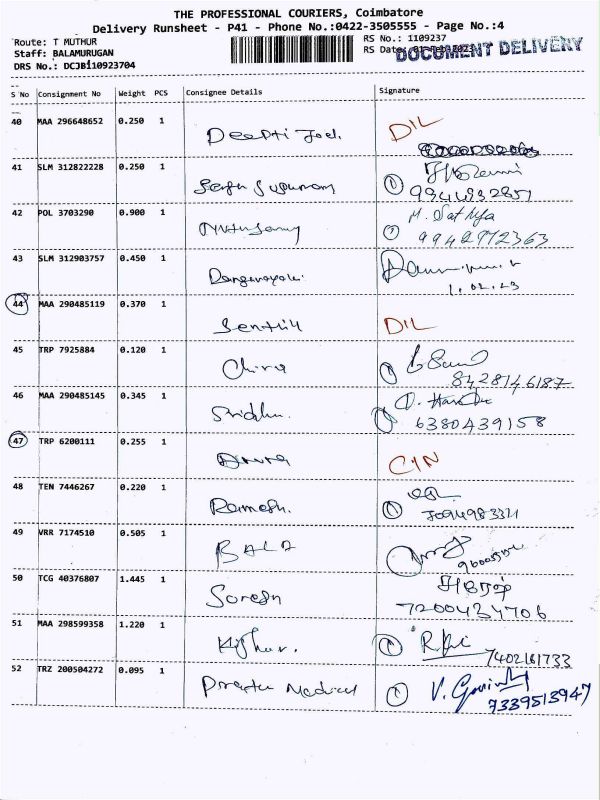 THE PROFESSIONAL COURIERS, Coimbatore
Delivery Runsheet - P41 - Phone No.:0422-3505555 - Page No.:4
Route: T MUTHUR RS No.: 1109237
Staff: BALAMURUGAN RS Date: 01-Feb-2023 DOCUMENT DELIVERY
DRS No.: DCJB1110923704
S No Consignment No Weight PCS Consignee Details Signature
40 MAA 296648652 0.250 1 Deepti Joel. DIL
41 SLM 312822228 0.250 1
9944932857
42 POL 3703290 0.900 1 M. Sathya
9942972363
43 SLM 312903757 0.450 1
1.02.23
44 MAA 290485119 0.370 1 Senthil DIL
45 TRP 7925884 0.120 1 Chitra
8428146187
46 MAA 290485145 0.345 1 Sridhar.
6380439158
47 TRP 6200111 0.255 1 C/N
48 TEN 7446267 0.220 1 Ramesh.
49 VRR 7174510 0.505 1 BALA
50 TCG 40376807 1.445 1 Suresh சுரேஷ்
7200434706
51 MAA 298599358 1.220 1 Kishor.
7402161733
52 TRZ 200504272 0.095 1 Medical V. Govind
7339513947